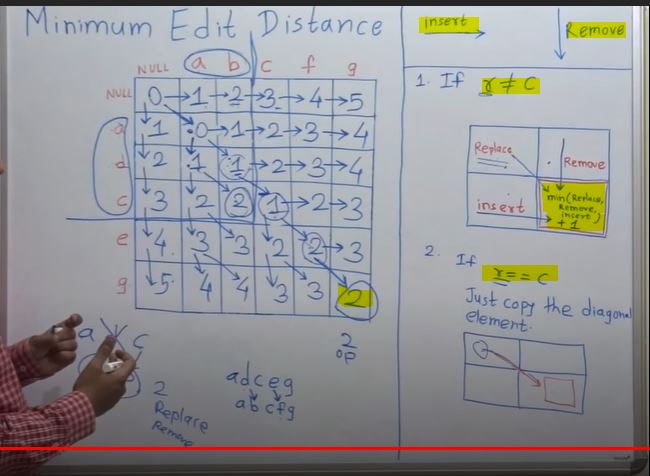 Minimum Edit Distance
insert
Remove
NULL a b c f g
NULL 0 1 2 3 4 5
a 1 0 1 2 3 4
d 2 1 1 2 3 4
c 3 2 2 1 2 3
e 4 3 3 2 2 3
g 5 4 4 3 3 2
2
op
a c
2
Replace
Remove
adceg
abcfg
1. If r ≠ c
Replace
Remove
insert
min(Replace,
Remove,
insert)
+1
2. If
r == c
Just copy the diagonal
element.